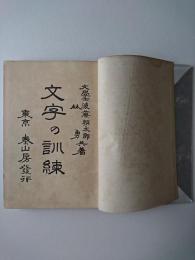 文學士 後藤朝太郎
林 勇 共著
文字の訓練
東京 泰山房發行